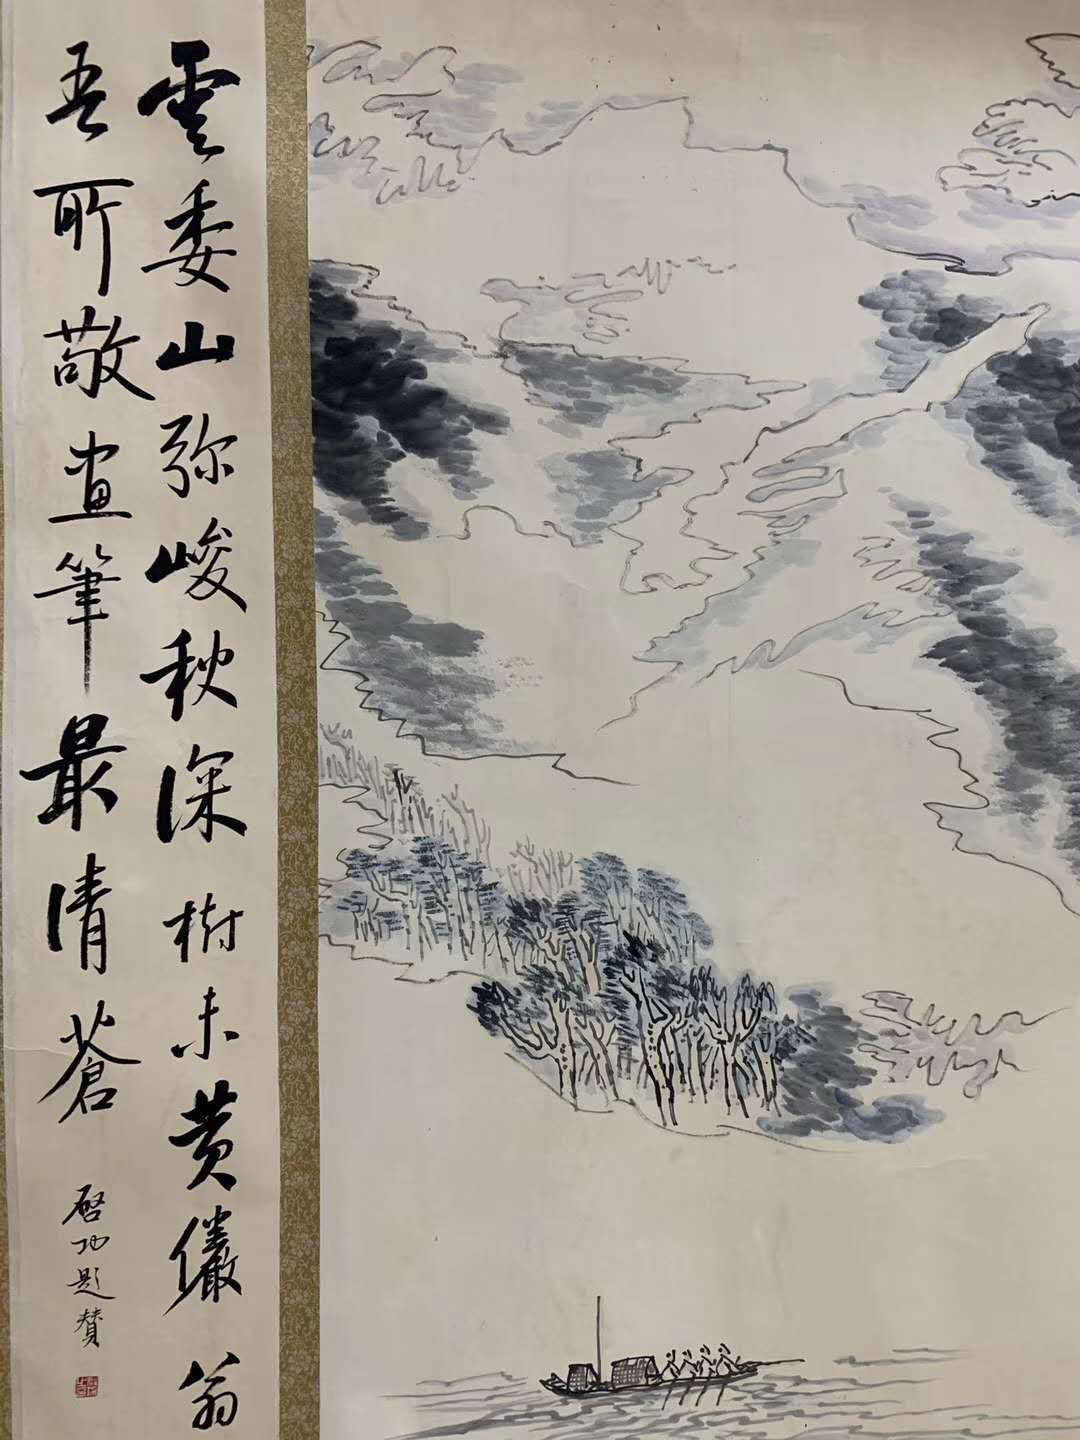 雲委山弥峻秋深樹未黄儼翁
吾所敬畫筆最清蒼
啓功題贊